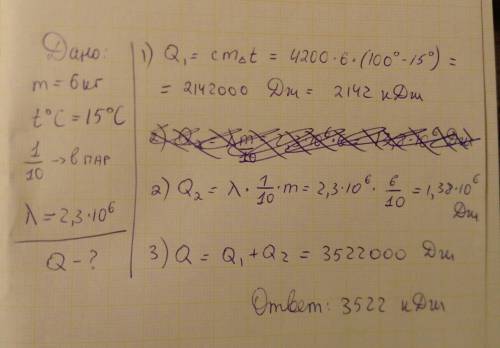 Дано:
m = 6 кг
t°C = 15°C
1/10 → в пар
λ = 2,3·10⁶
Q - ?
1) Q₁ = cm△t = 4200·6·(100° - 15°) =
= 2142000 Дж = 2142 кДж
2) Q₂ = λ · 1/10 · m = 2,3·10⁶ · 6/10 = 1,38·10⁶
Дж
3) Q = Q₁ + Q₂ = 3522000 Дж
Ответ: 3522 кДж